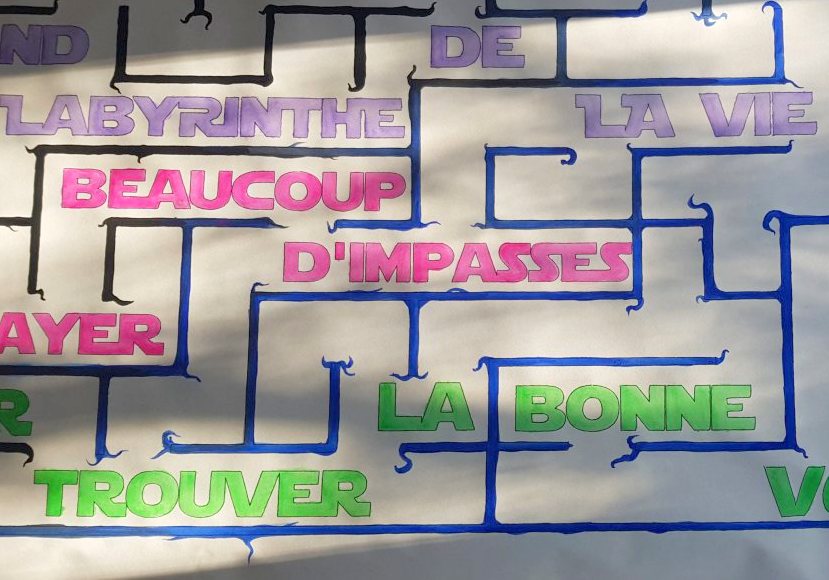 ND DE
LABYRINTHE LA VIE
BEAUCOUP
D'IMPASSES
AYER
R LA BONNE
TROUVER VO